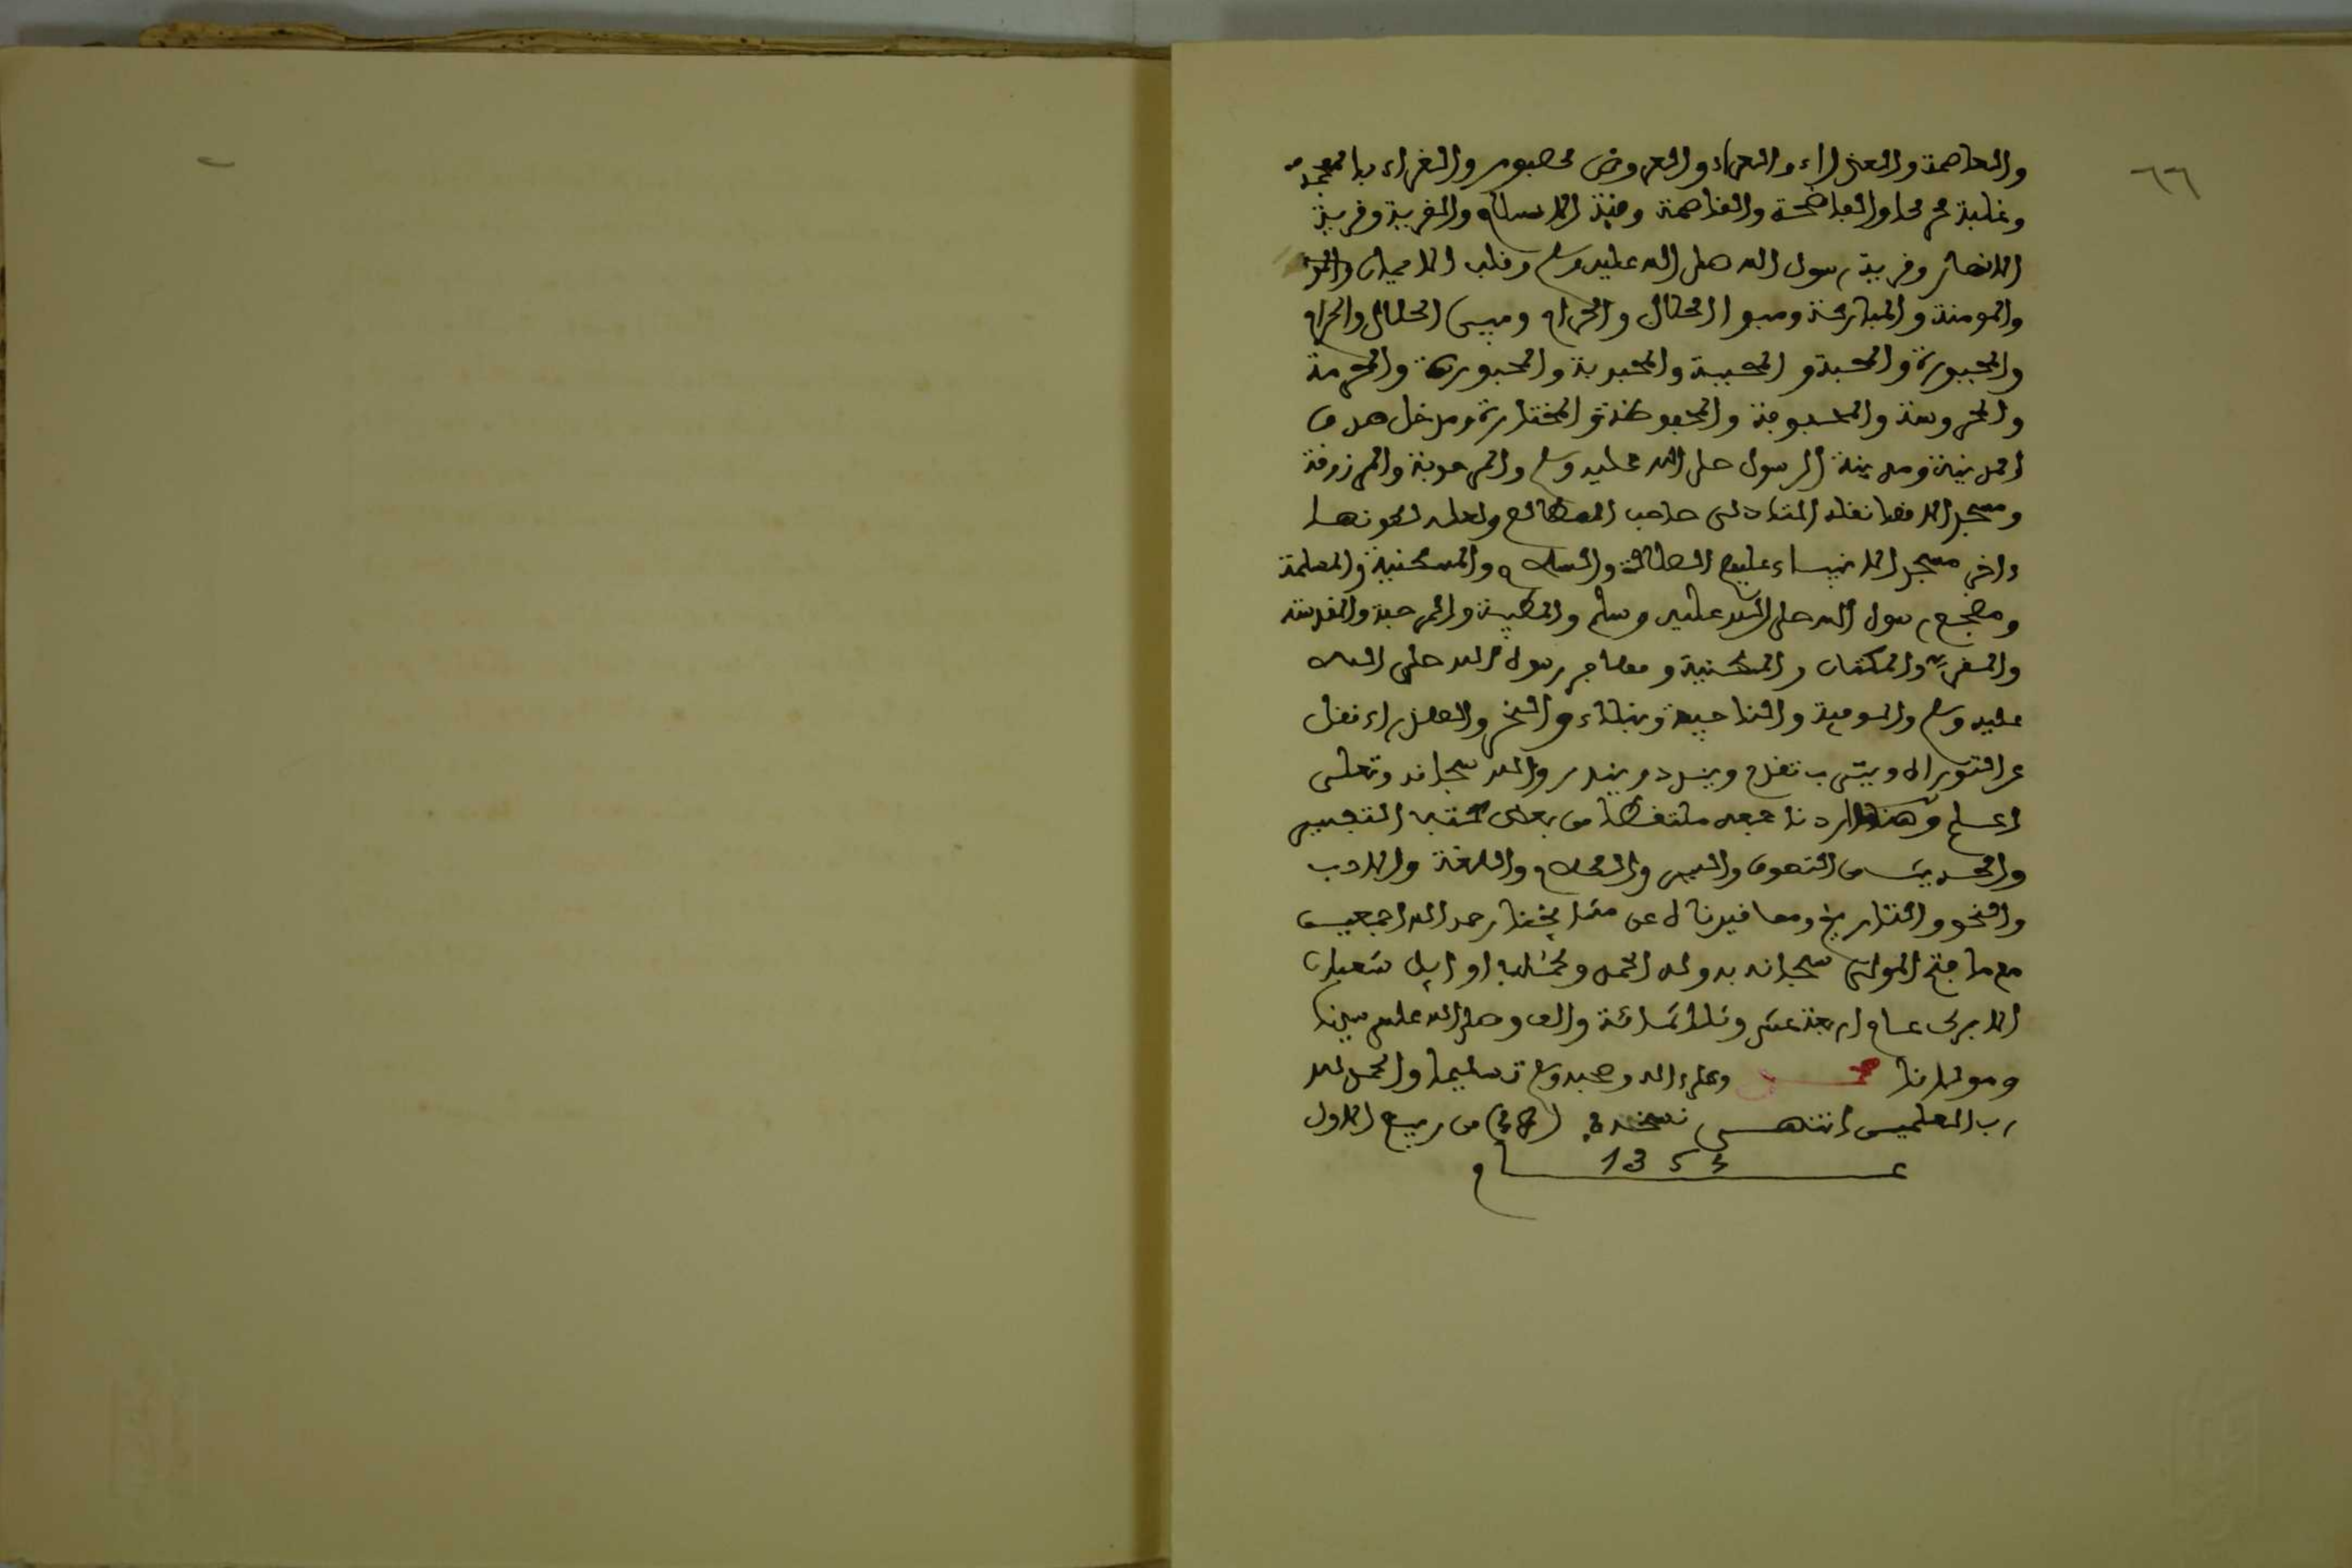 ٦٦
والعاصمة والعذراء والعراء والعروض كصبور والغراء بالمعجمة
وغلبة محركا والفاضحة والقاصمة وقبة الاسلام والقرية وقرية
الانصار وقرية رسول الله صلى الله عليه وسلم وقلب الايمان
والمومنة والمباركة ومبوا الحلال والحرام ومبين الحلال والحرام
والمجبورة والمحبة و المحببة والمحبوبة والمحبورة والمحرمة
والمحروسة والمحفوفة والمحفوظة والمختارة ومدخل صدق
المدينة ومدينة الرسول صلى الله عليه وسلم والمرحومة والمرزوقة
ومسجد الاقصا نقله التادلى صاحب المطالع ولعله لكونها
ءاخر مسجد الانبياء عليهم الصلاة والسلام والمسكينة والمسلمة
ومضجع رسول الله صلى الله عليه وسلم والمطيبة والمرحبة والمقدسة
والمقر والمكتان والمسكينة ومهاجر رسول الله صلى الله
عليه وسلم والموفية والناجية ونبلاء والنحر والعذراء نقل
عن التوراة ويثرب تقدم ويندد ويندر والله سبحانه وتعلى
اعلم وهنا اردنا جمعه ملتقطا من بعض كتب التفسير
والحديث من التصوف والسير والكلام واللغة والادب
والنحو والتاريخ ومما قيدناه عن مشايخنا رحمه الله اجمعين
مع ما فتح المولى سبحانه به وله الحمد وكمل اوايل شعبان
الابرك عام اربعة عشر وثلاثمائة والف وصلى الله على سيدنا
ومولانا محمد وعلى ءاله وصحبه وسلم تسليما والحمد لله
رب العلمين انتهى نسخه من ربيع الاول
عام 1353